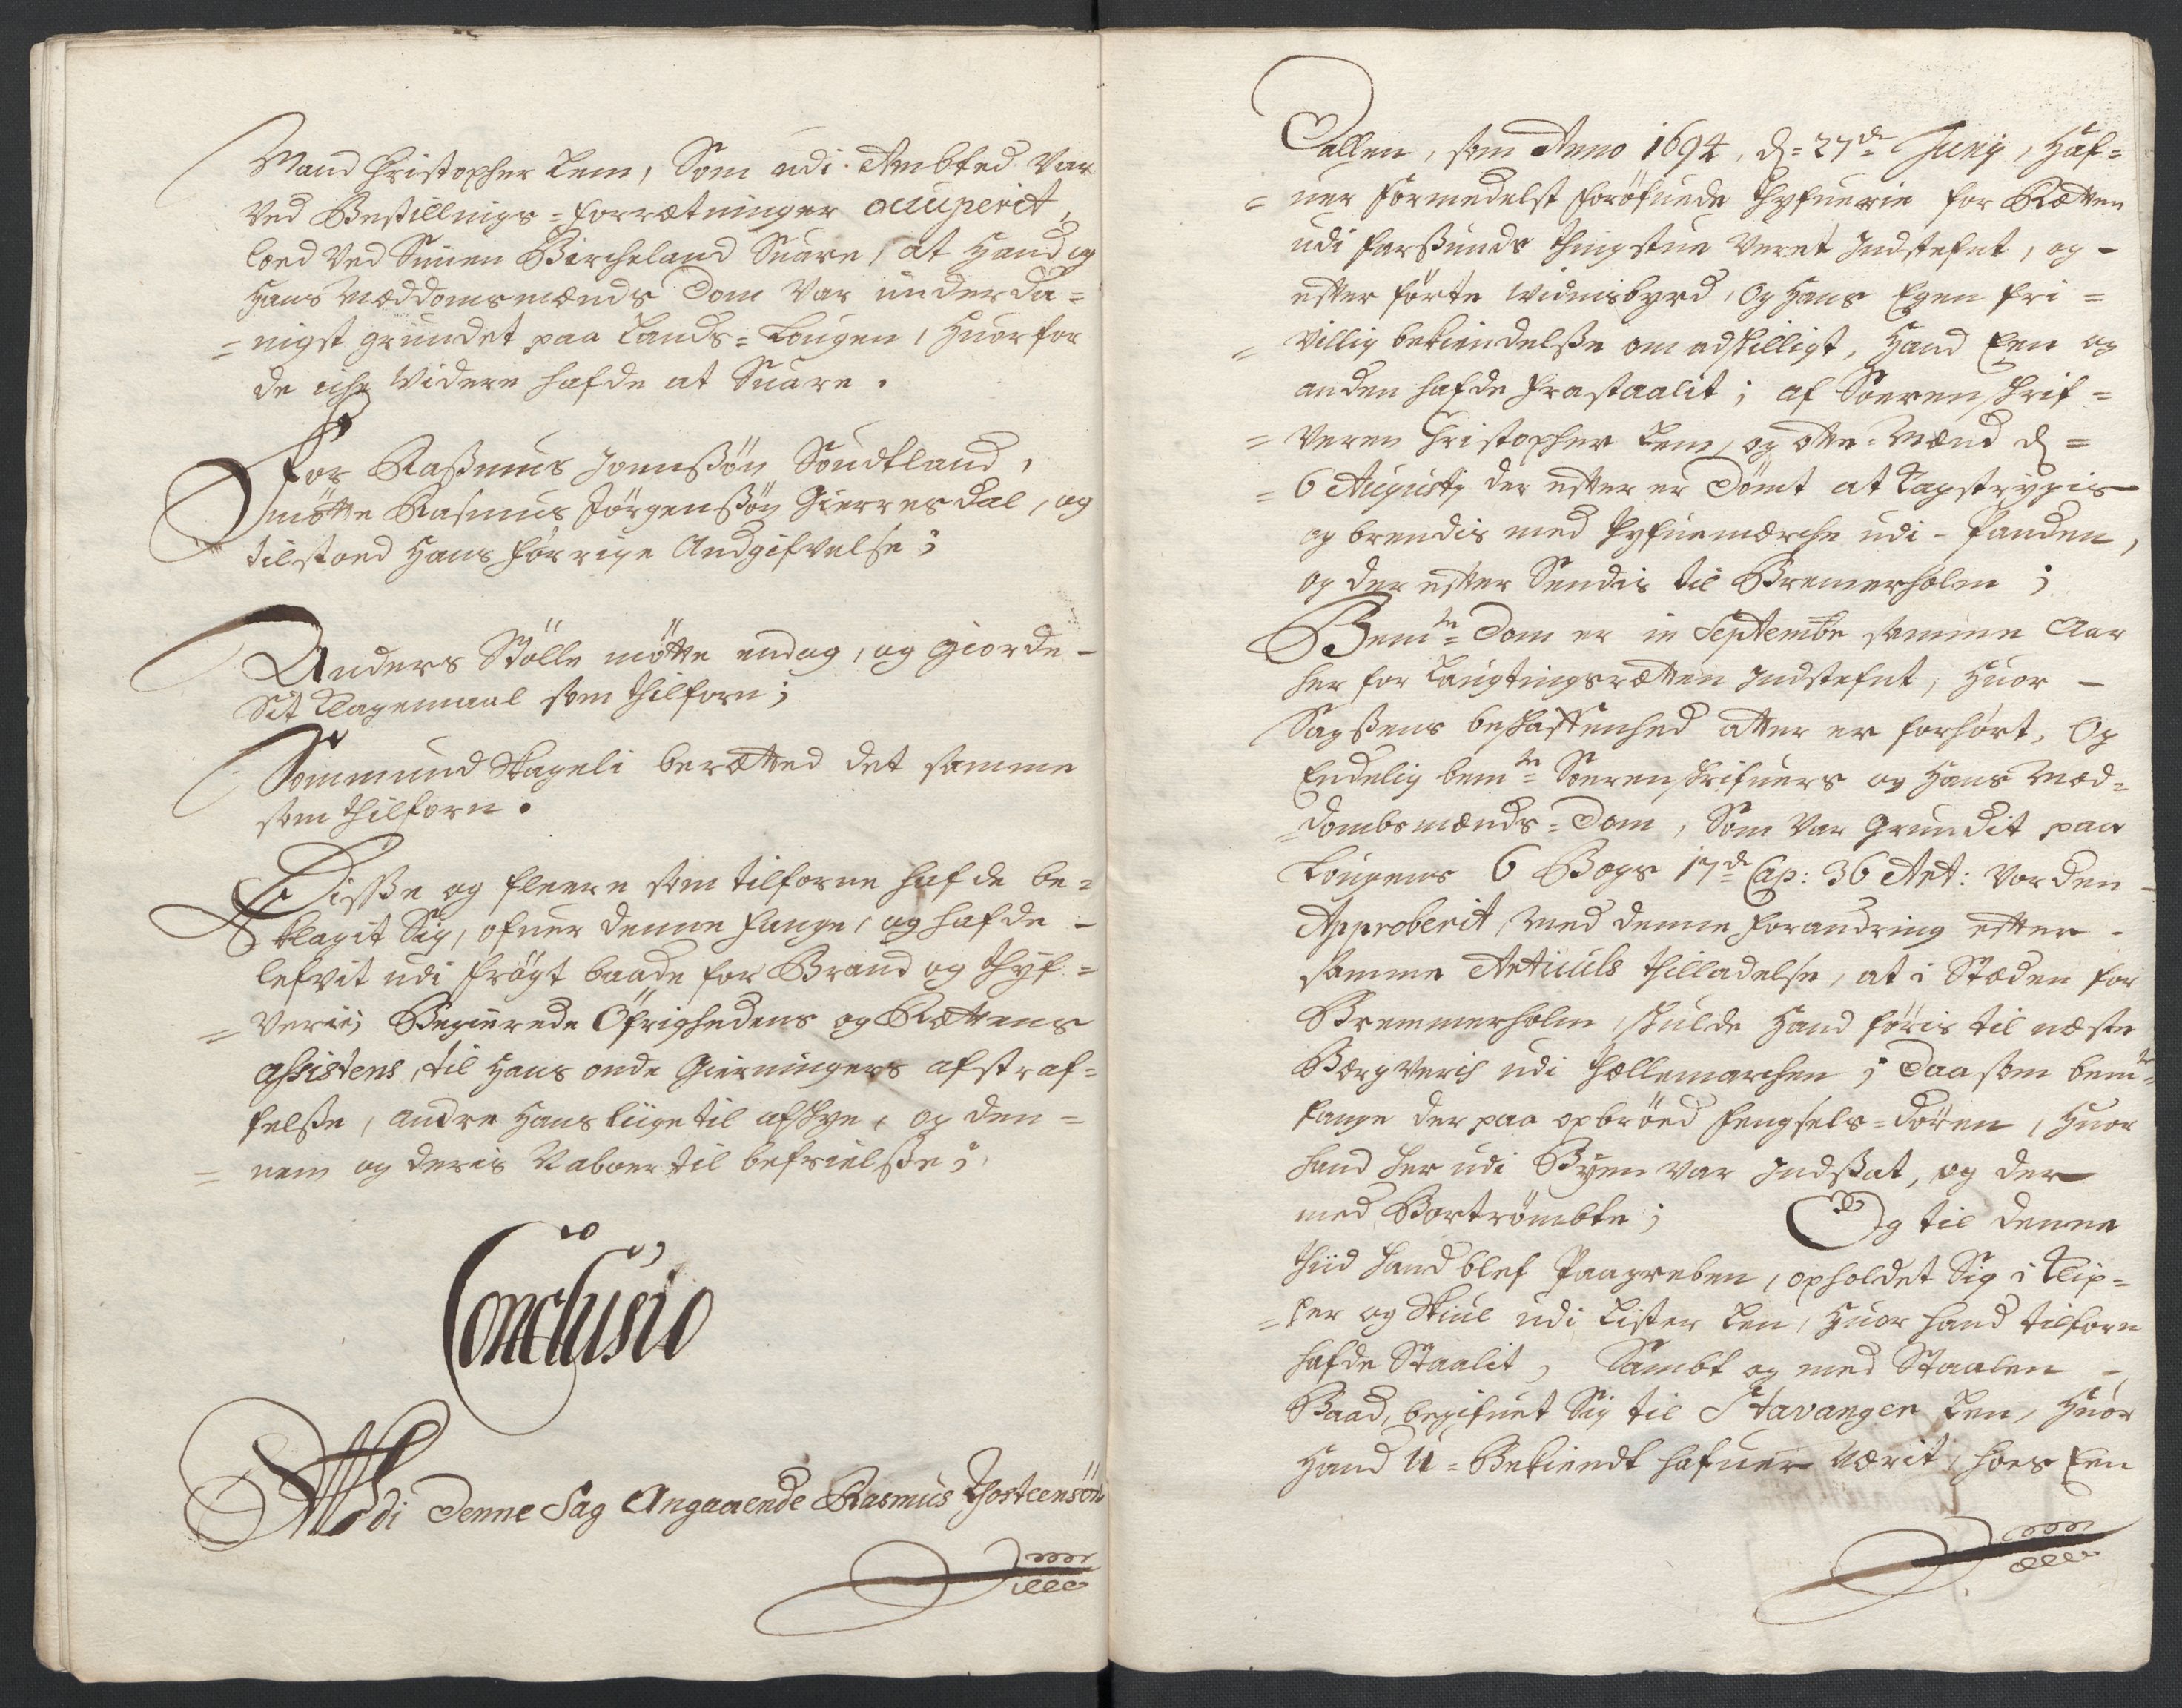 Mand Christopher Lem, Som udi Ambted var
ved Bestillings-forrætninger occuperit,
loed ved Simen Bircheland Suare, at Hand og
Hans Mæddomsmænds Dom var underda=
=nigst grundet paa Lands=Lougen, Huorfor
de iche Widere hafde at Suare.
For Rassmus Joenssøn Soudtland,
møtte Rasmus Jørgenssøn Gierresdal, og
tilstoed Hans forrige Andgifvelse;
Anders Stølle møtte endog, og giorde -
Sit Klagemaal som thilforn;
Sommund Skageli berætted det samme
som thilforn.
Disse og fleere som tilforne hafde be=
klagit Sig, ofuer denne fange, og hafde -
lefvit udi frögt baade for Brand og thyf=
=verie; Begierede Öfrighedens og Rættens
assistens, til Hans onde Gierningers afstraf=
felsse, andre Hans liige til afskye, og den=
=nem og deris Naboer til befrielsse;
Conclusio
Udi Denne Sag Angaaende Rasmus Thosteensön
Dallen, som Anno 1694, d= 27de Junij, Haf=
=uer formedelst forøfuede Thyfuerie for Rætten
udi Farssunds Thingstue veret Indstefnt, og -
efter førte Widnisbyrd, Og Hans Egen fri=
=villig bekiendelsse om adskilligt, Hand Een og
anden hafde frastaalit; af Soerenskrif=
=veren Christopher Lem, og otte Mænd d=
=6 Augustj der efter er Dømt at Kagstrygis
og brendis med Tyfuemærche udi - Panden,
og der efter Sendis til Bremerholm;
Bemte Dom er in Septembr samme Aar
her for Laugtingsrætten Indstefnt, Huor -
Sagssens beskaffenhed atter er forhørt, Og
Endelig bemte Soerenskrifuers og Hans Mæd=
=dombsmænds=Dom, Som var Grundit paa
Lougens 6 Bogs 17de Cap: 36 Art: vorden -
Approberit, med denne forandring efter -
samme Articuls thilladelse, at i Stæden for
Bremmerholm, skulde Hand føris til næste
Bergverch udi Tællemarchen; Daa som bemte
fange der paa opbröed fengsels=dören, Huor
Hand her udi Byen var Indssat, og der
med Bortrømbte; Og til denne
Tiid Hand blef Paagreben, opholdet Sig i Klip=
=per og Skiul udi Lister Len, Huor Hand tilforn
hafde Staalit, Sambt og med Staalen -
Baad, begifuet Sig til Stavanger Len, Huor
Hand U=Bekiendt hafuer Værit, hoes Een